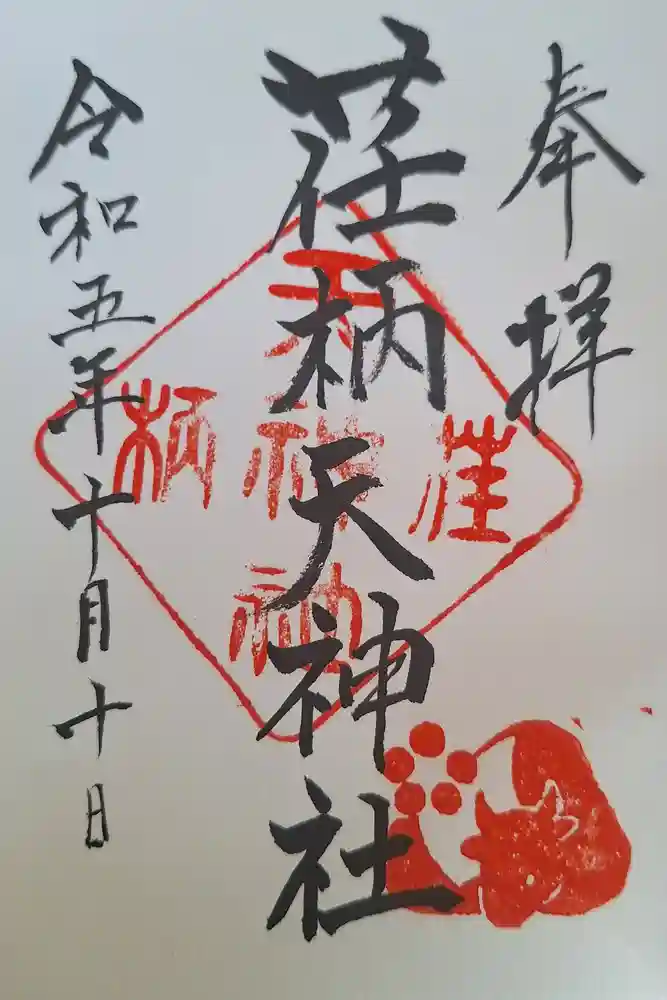 奉拝
荏柄天神社
令和五年十月十日
荏
天
柄
神